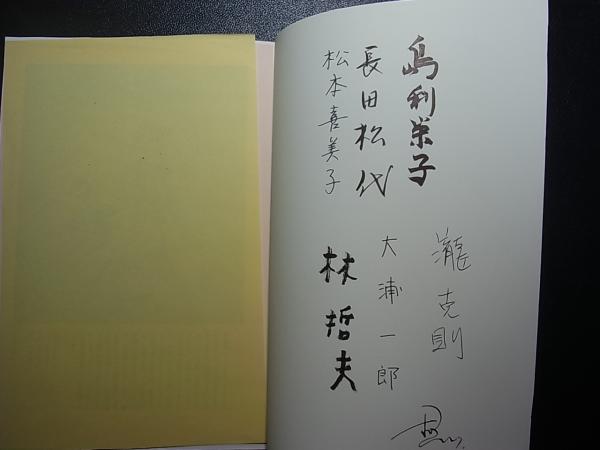 島利栄子
長田松代
松本喜美子
瀧克則
大浦一郎
林哲夫